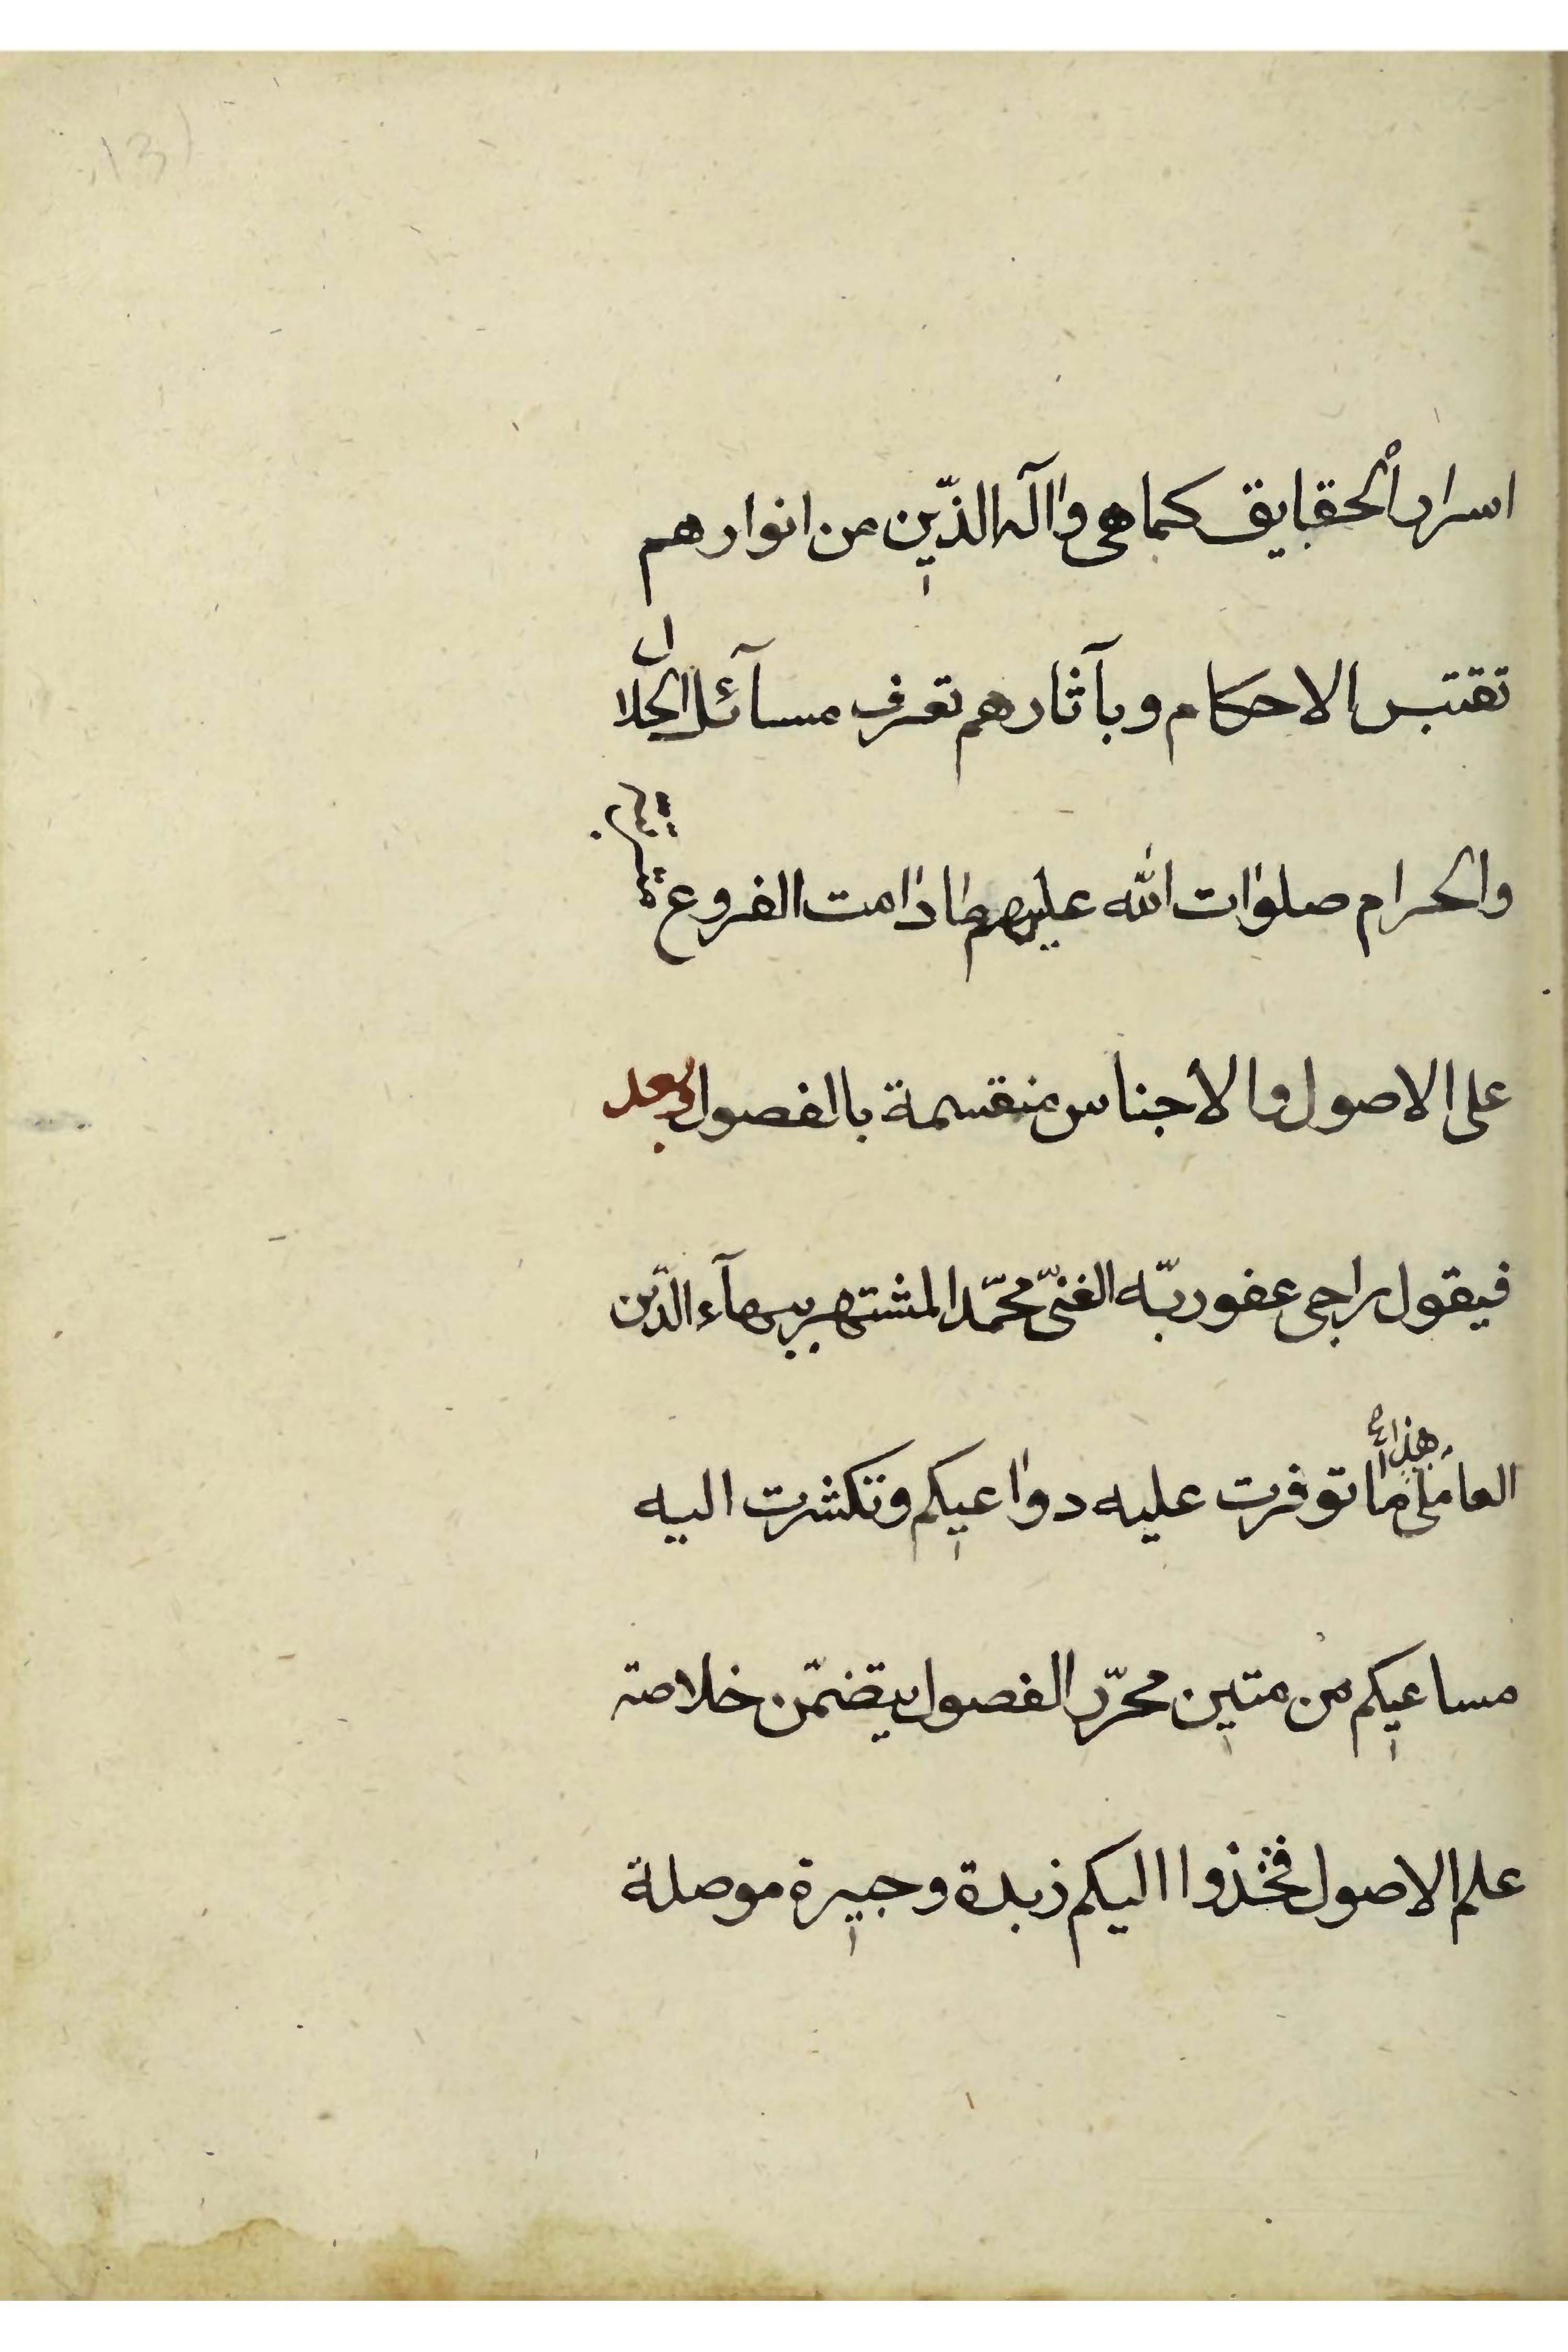 اسرار الحقايق كما هى واله الذّين من انوارهم
تقتبس الاحكام وبآثارهم تعرف مسآئل الحلال
والحرام صلوات الله عليهم ما دامت الفروع مترتبة
على الاصول والاجناس منقسمة بالفصول وبعد
فيقول راجى عفو ربّه الغنىّ محمّد المشتهر ببهآء الدّين
العاملى هذا ما توفرت عليه دواعيكم وتكثرت اليه
مساعيكم من متين محرّر الفصول يتضمّن خلاصة
علم الاصول فخذوا اليكم زبدة وجيزة موصلة